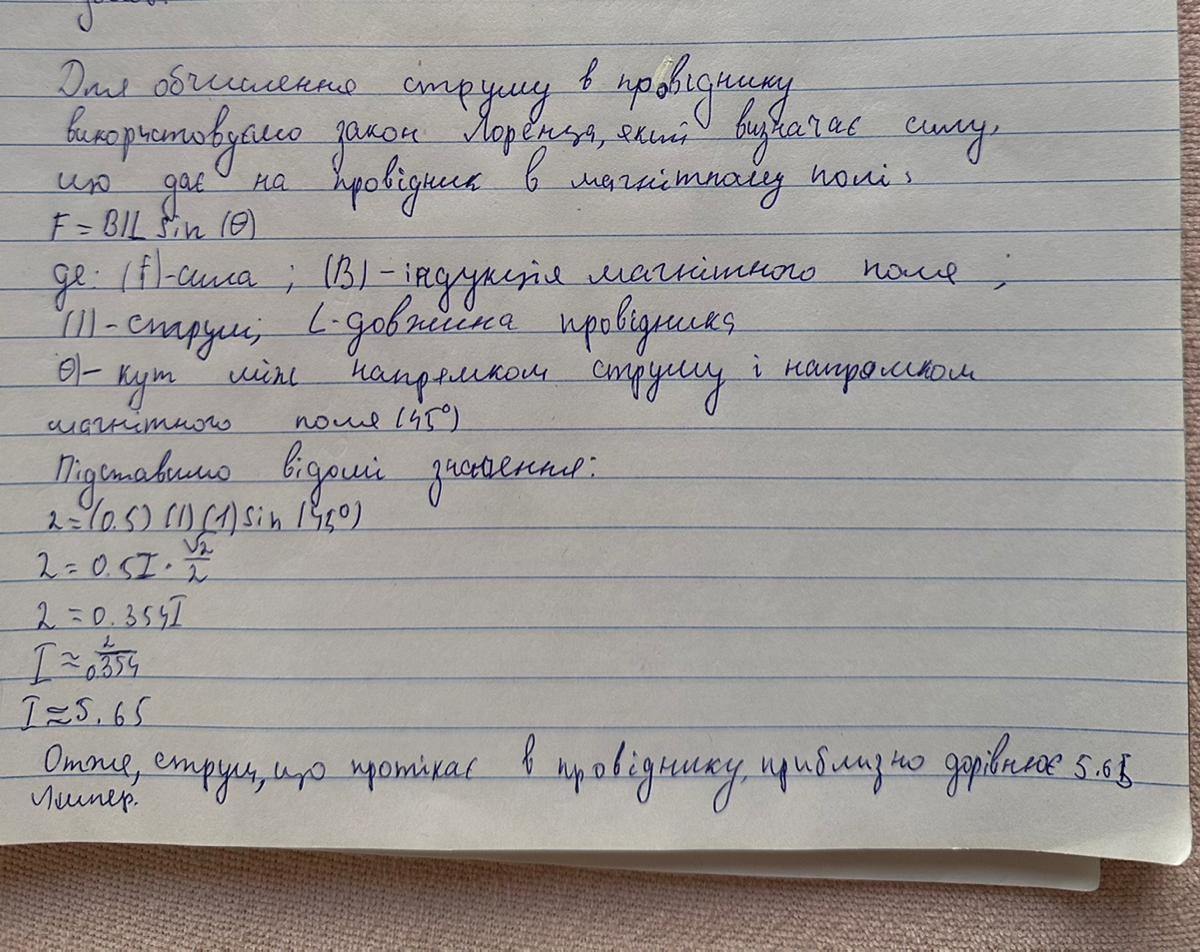 Для обчислення струму в провіднику
використовуємо закон Лоренца, який визначає силу,
що дає на провідник в магнітному полі:
F = BIL sin (θ)
де: (f)-сила ; (B) - індукція магнітного поля ;
(I) - струм; L - довжина провідника
θ) - кут між напрямком струму і напрямком
магнітного поля (45°)
Підставимо відомі значення:
2 = (0.5) (I) (1) sin (45°)
2 = 0.5I · √2/2
2 = 0.354I
I ≈ 2/0.354
I ≈ 5.65
Отже, струм, що протікає в провіднику, приблизно дорівнює 5.65
Ампер.